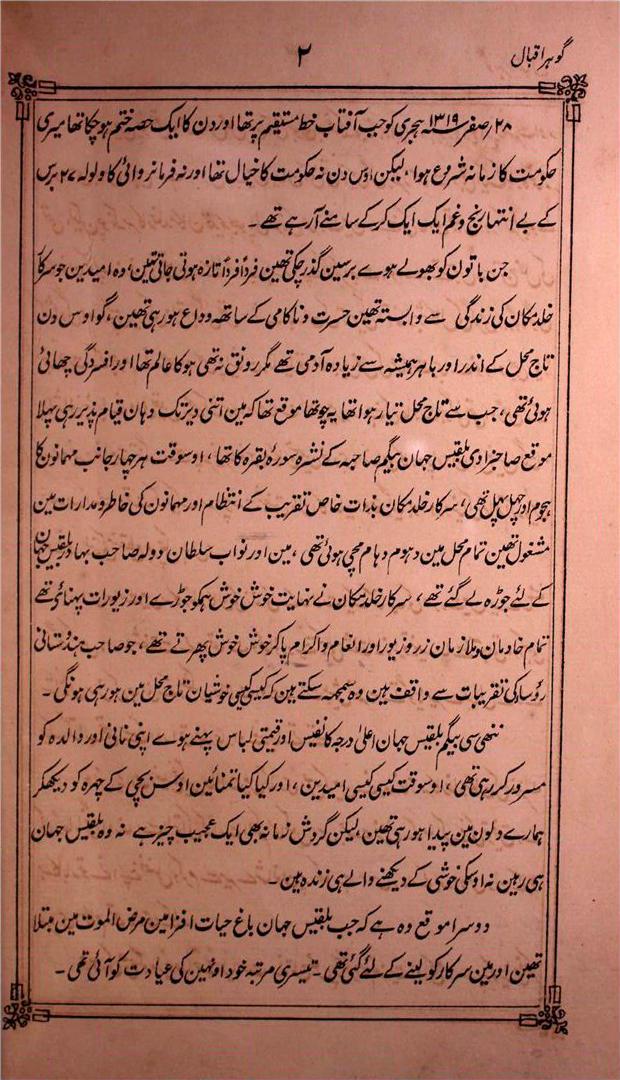 گوہر اقبال
۲
۲۸ صفر سنہ ۱۳۱۹ ہجری کو جب آفتاب خط مستقیم پر تھا اور دن کا ایک حصہ ختم ہو چکا تھا میری
حکومت کا زمانہ شروع ہوا، لیکن اوس دن نہ حکومت کا خیال تھا اور نہ فرمانروائی کا ولولہ ۲۷ برس
کے بے انتہا رنج و غم ایک ایک کرکے سامنے آ رہے تھے۔
جن باتون کو بھولے ہوے برسین گذر چکی تھین فرداً فرداً تازہ ہوتی جاتی تھین، وہ امیدین جو سرکار
خلد مکان کی زندگی سے وابستہ تھین حسرت و ناکامی کے ساتھ وداع ہو رہی تھین، گو اوس دن
تاج محل کے اندر اور باہر ہمیشہ سے زیادہ آدمی تھے مگر رونق نہ تھی ہو کا عالم تھا اور افسردگی چھائی
ہوئی تھی، جب سے تاج محل تیار ہوا تھا یہ چوتھا موقع تھا کہ مین اتنی دیر تک وہان قیام پذیر رہی پہلا
موقع صاحبزادی بلقیس جہان بیگم صاحبہ کے نشرہ سورہ بقرہ کا تھا، اوسوقت ہر چہار جانب مہمانون کا
ہجوم اور چہل پہل تھی، سرکار خلد مکان بذات خاص تقریب کے انتظام اور مہمانون کی خاطر و مدارات مین
مشغول تھین تمام محل مین دہوم دہام مچی ہوئی تھی، مین اور نواب سلطان دولہ صاحب بہادر بلقیس جہان
کے لئے جوڑہ لے گئے تھے، سرکار خلد مکان نے نہایت خوش خوش ہمکو جوڑے اور زیورات پہنائے تھے
تمام خادمان و ملازمان زر و زیور اور انعام و اکرام پاکر خوش خوش پھرتے تھے، جو صاحب ہندوستانی
رؤسا کی تقریبات سے واقف ہین وہ سمجھ سکتے ہین کہ کیسی کیسی خوشیان تاج محل مین ہو رہی ہونگی۔
ننھی سی بیگم بلقیس جہان اعلیٰ درجہ کا نفیس اور قیمتی لباس پہنے ہوے اپنی نانی اور والدہ کو
مسرور کر رہی تھی، اوسوقت کیسی کیسی امیدین، اور کیا کیا تمنائین اوس بچی کے چہرہ کو دیکھکر
ہمارے دلون مین پیدا ہو رہی تھین، لیکن گردش زمانہ بھی ایک عجیب چیز ہے نہ وہ بلقیس جہان
ہی رہین نہ اوسکی خوشی کے دیکھنے والے ہی زندہ ہین۔
دوسرا موقع وہ ہے کہ جب بلقیس جہان باغ حیات افزا مین مرض الموت مین مبتلا
تھین اور مین سرکار کو لینے کے لئے گئی تھی۔ تیسری مرتبہ خود اونہین کی عیادت کو آئی تھی۔